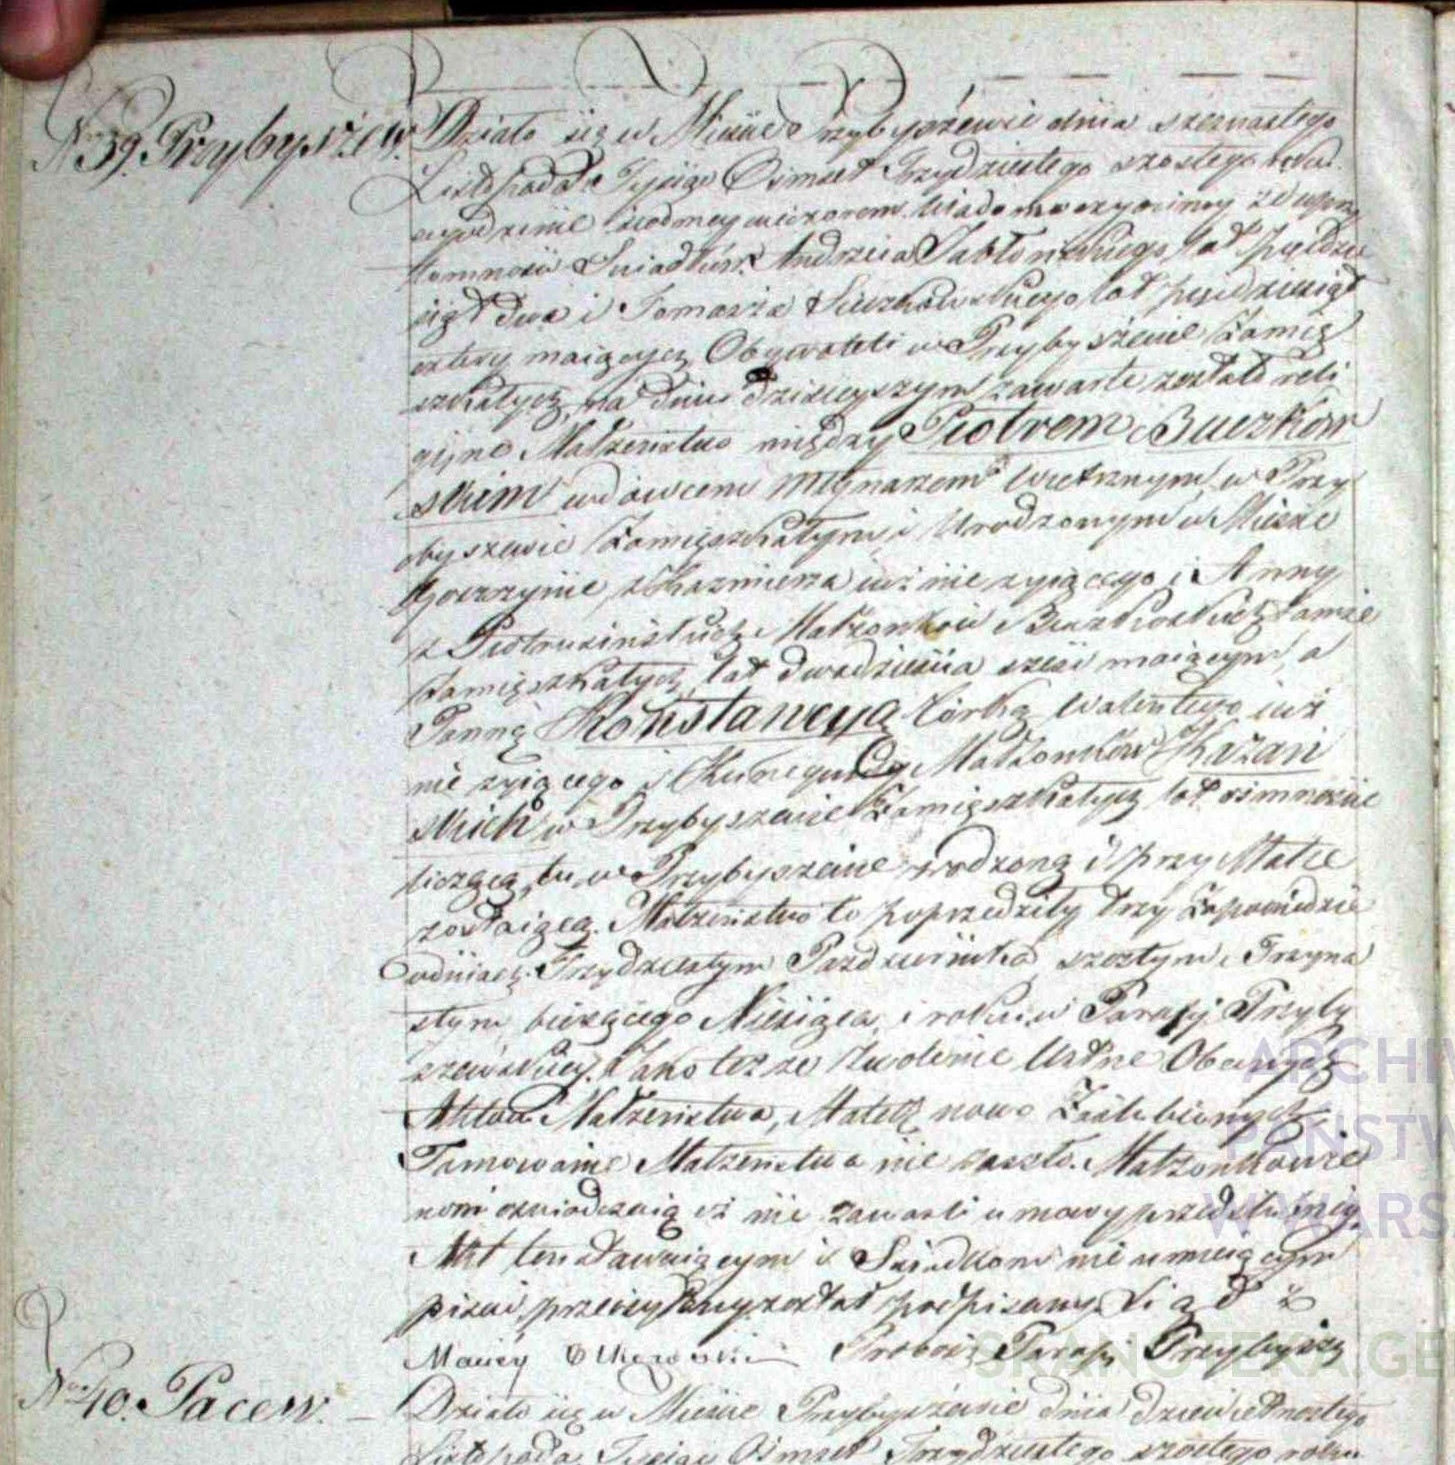 Nro 39. Przybyszew. Działo się w Mieście Przybyszewie dnia szesnastego
Listopada Tysiąc Ośmset Trzydziestego szostego roku
o godzinie siodmey wieczorem. Wiadomo czyniemy że w przy
tomności Swiadków Andrzeia Jabłonskiego lat pięćdzie
siąt dwa i Tomasza lat pięćdziesiąt
cztery maiących Obywateli w Przybyszewie Zamie
szkałych, na dniu dzisieyszym zawarte zostało reli
gijne Małżeństwo między Piotrem Buczkow
skim wdowcem młynarzem wietrznym w Przy
byszewie Zamięszkałym i Urodzonym w Mieście
z Kazmierza iuż nie zyiącego i Anny
z Piotrusińskich Małżonków Buczkoskich tamże
zamięszkałych, lat dwadzieścia sześć maiącym, a
Panną Konstancyą córką Walentego iuż
nie zyiącego i Kunegundy Małżonków Kazań
skich w Przybyszewie Zamięszkałych lat ośmnaście
liczącą, tu w Przybyszewie rodzoną i przy Matce
zostaiącą. Małżeństwo to poprzedziły trzy Zapowiedzie
w dniach Trzydziestym Pazdziernika szostym i Trzyna
stym bieżącego Miesiąca i roku w Parafij Przyby
szewskiey. Jako też ze zwolenie Ustne Obecnych
Aktowi Małżeństwa, Matek nowo Zaślubionych
Tamowanie Małżeństwa nie zaszło. Małżonkowie
nowi oswiadczaią iż nie zawarli umowy przedślubney.
Akt ten Stawaiącym i Swiadkom nie umieiącym
pisać, przeczytany został podpisany.
Maciey Olkowski Proboszcz Parafi Przybyszew
Nro 40. Pacew. — Działo się w Mieście Przybyszewie dnia dziewietnastego
Listopada Tysiąc Ośmset Trzydziestego szostego roku
ARCHIW
PAŃSTW
W WARS
SKANOTEKA.GE